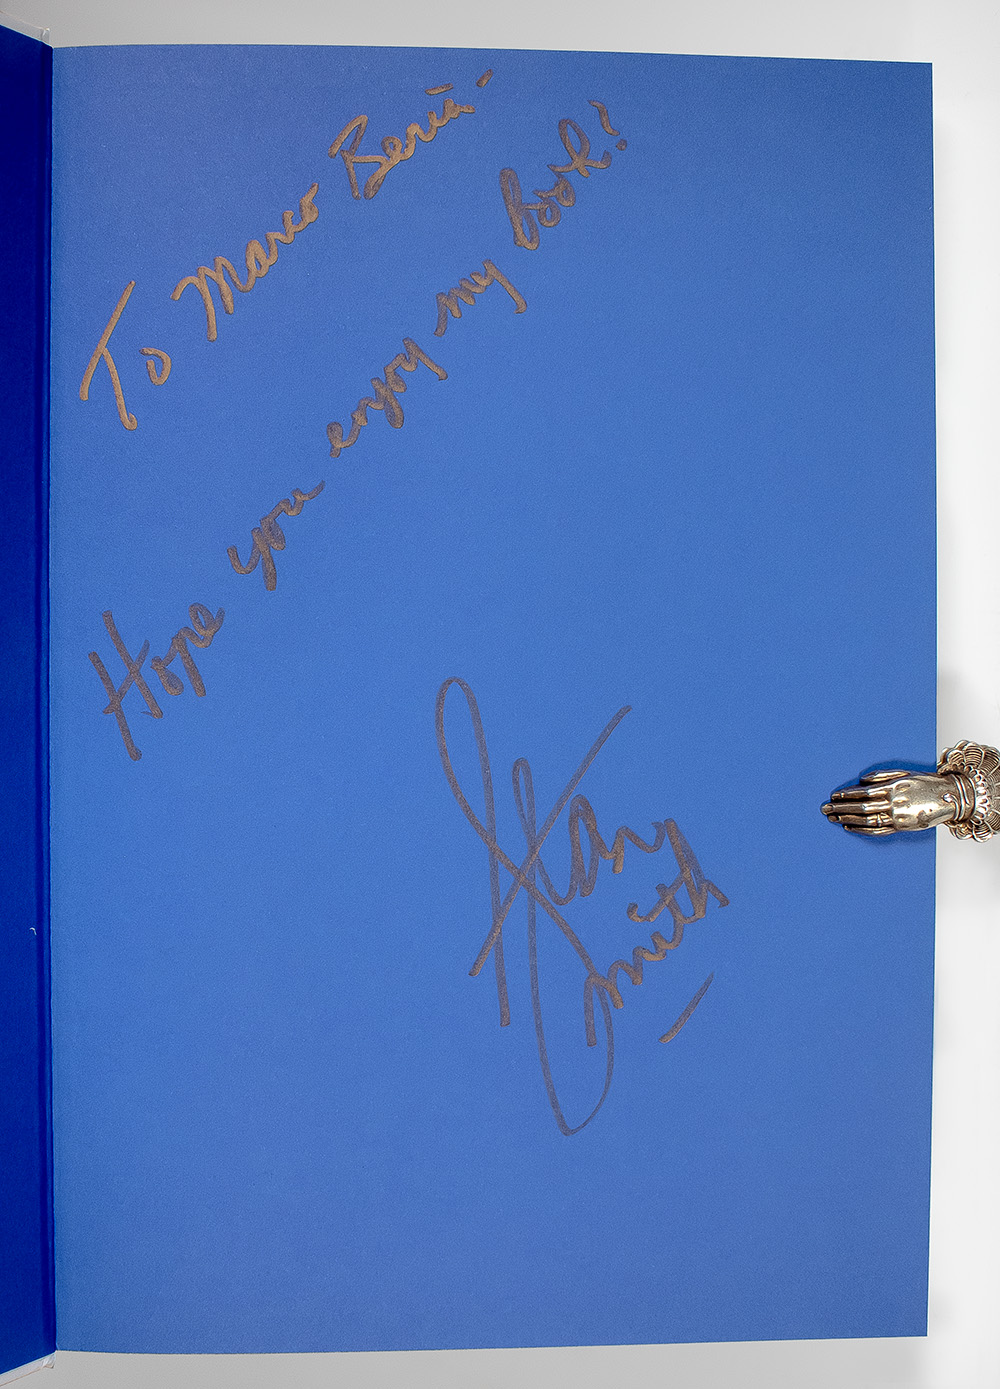 To Marco Beriā -
Hope you enjoy my book!
Stan
Smith